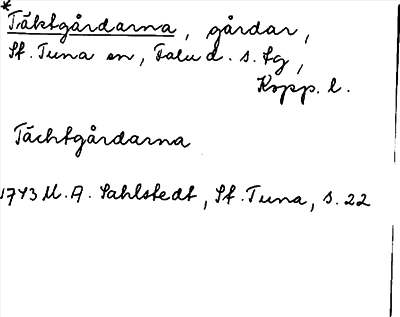 *
Täktgårdarna, gårdar,
St. Tuna sn, Falu d. s. fg,
Kopp. l.
Tächtgårdarna
1743 M. A. Sahlstedt, St. Tuna, s. 22